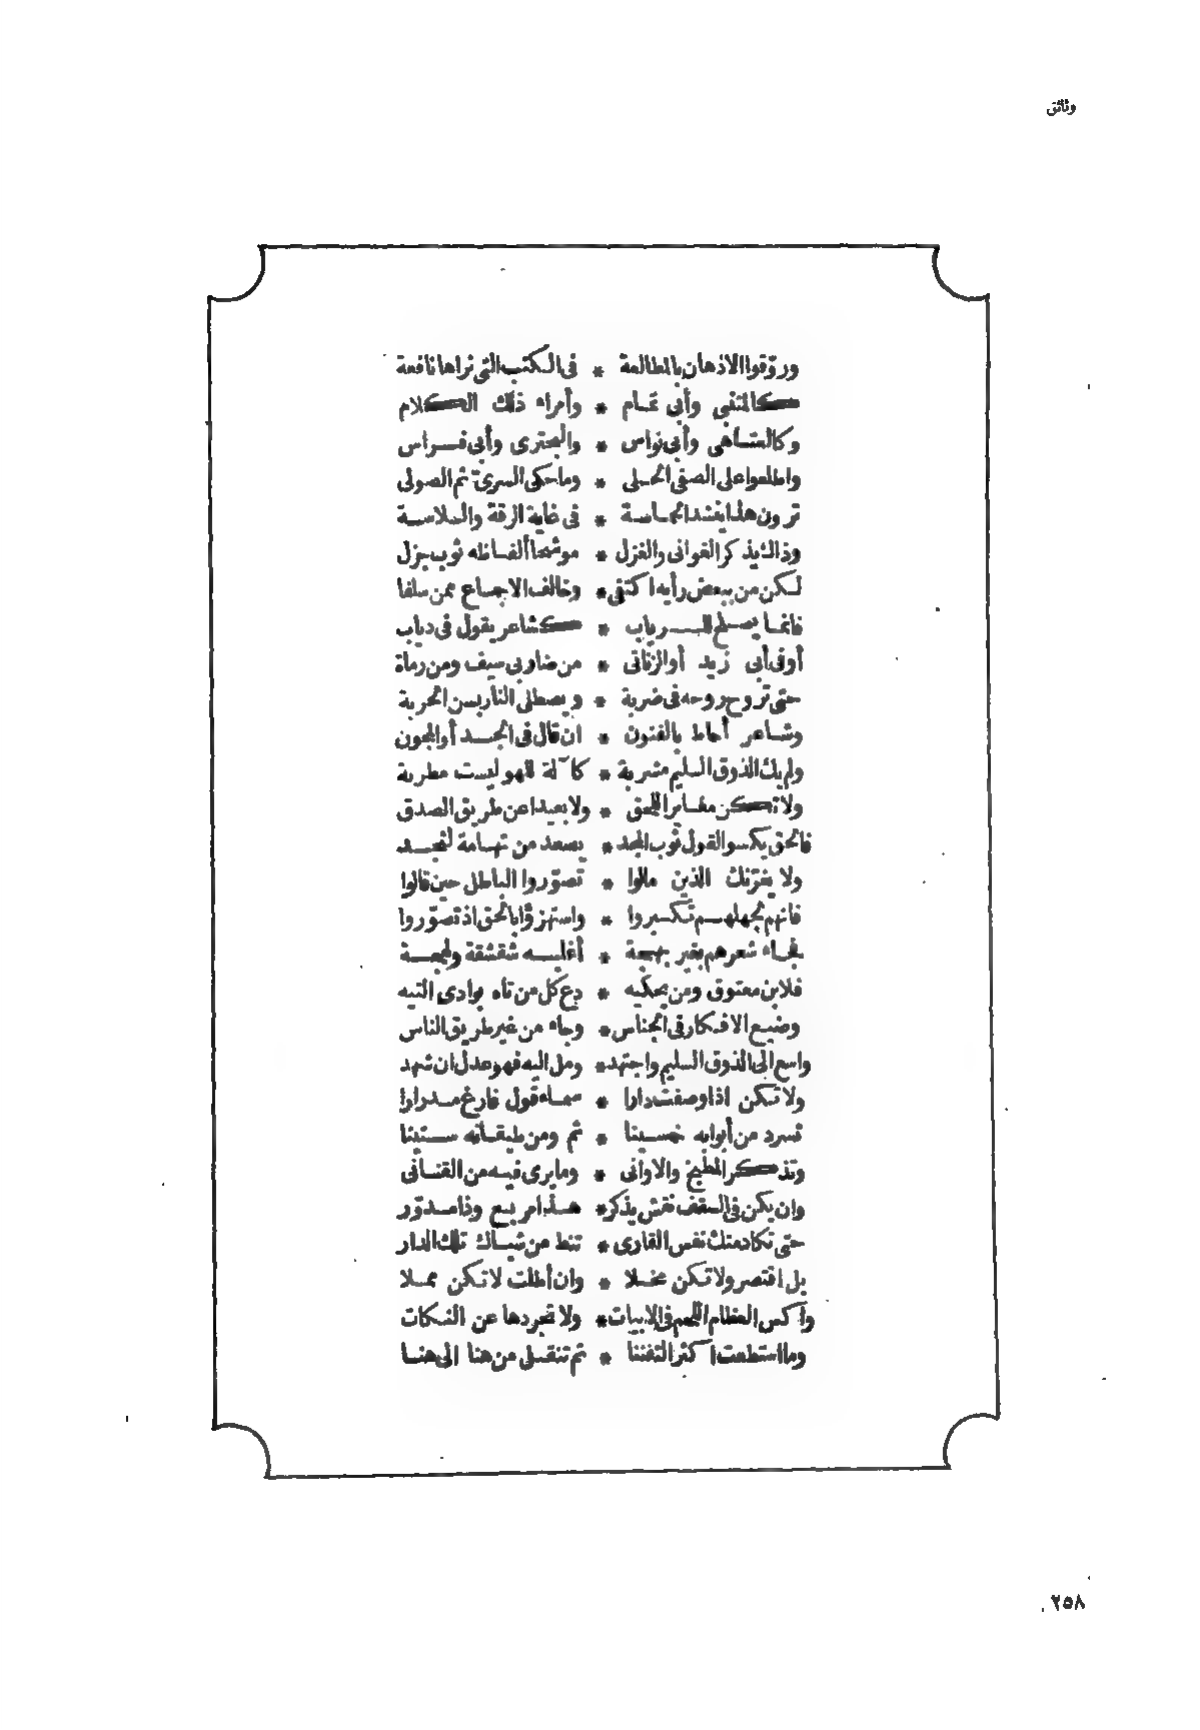 وثائق
وروّقوا الاذهان بالمطالعة * فى الكتب التى نراها نافعة
كالمتنبى وأبى تمام * وأمراء ذلك الكلام
وكالعتاهى وأبى نواس * والبحترى وأبى فراس
واطلعوا على الصفى الحلى * وما حكى السرىّ ثم الصولى
ترون هذا ينشد الحماسة * فى غاية الرقة والسلاسة
وذاك يذكر الغوانى والغزل * موشحا ألفاظه ثوب جزل
لكن من ببعض رأيه اكتفى * وخالف الاجماع ممن سلفا
فانما يصلح للرباب * كشاعر يقول فى دياب
أوفى أبى زيد أو الزناتى * من ضاربى سيف ومن رماة
حتى تروح روحه فى ضربة * ويصطلى النار بسن الحربة
وشاعر أحاط بالفنون * ان قال فى الجد أو المجون
ولم يك الذوق السليم مشربه * كآلة للهو ليست مطربة
ولا تكن مغاير اللحق * ولا بعيدا عن طريق الصدق
فالحق يكسو القول ثوب المجد * يصعد من تهامة لنجد
ولا يغرّنك الذين مالوا * تصوّروا الباطل حين قالوا
فانهم بجهلهم تكبروا * واستهزؤا بالحق اذ تصوّروا
فجاء شعرهم بغير بهجة * أغلبه شقشقة ولهجة
فلابن معتوق ومن يحكيه * دع كل من تاه بوادى التيه
وضيع الافكار فى الجناس * وجاء من غير طريق الناس
واسع الى الذوق السليم واجتهد * ومل اليه فهو عدل ان شهد
ولا تكن اذا وصفت دارا * سماء قول فارغ مدرارا
تسرد من أبوابه خمسينا * ثم ومن طيقانه ستينا
وتذكر المطبخ والاوانى * وما يرى فيه من القنانى
وان يكن فى السقف نقش يذكر * هذا مربع وذا مدوّر
حتى تكاد منك نفس القارى * تنط من شباك تلك الدار
بل اقتصر ولا تكن مخلا * وان أطلت لا تكن مملا
واكس العظام اللحم فى الابيات * ولا تجردها عن النكات
وما استطعت اكثر التفننا * ثم تنقل من هنا الى هنا
٢٥٨